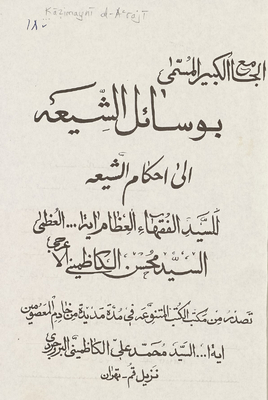 Kāzimaynī al-A‘rajī
١٨٠
الجامع الكبير المسمّى
بوسائل الشّيعه
الى احكام الشّيعه
للسيد الفقهاء العظام اية... العظمى
السيّد محسن الكاظميني الاعرجي
تصدر من مكتب الكتب المتنوعه في مدة مديدة من خادم المعصومين
اية ا... السيد محمد علي الكاظميني البروجردي
نزيل قم - تهران